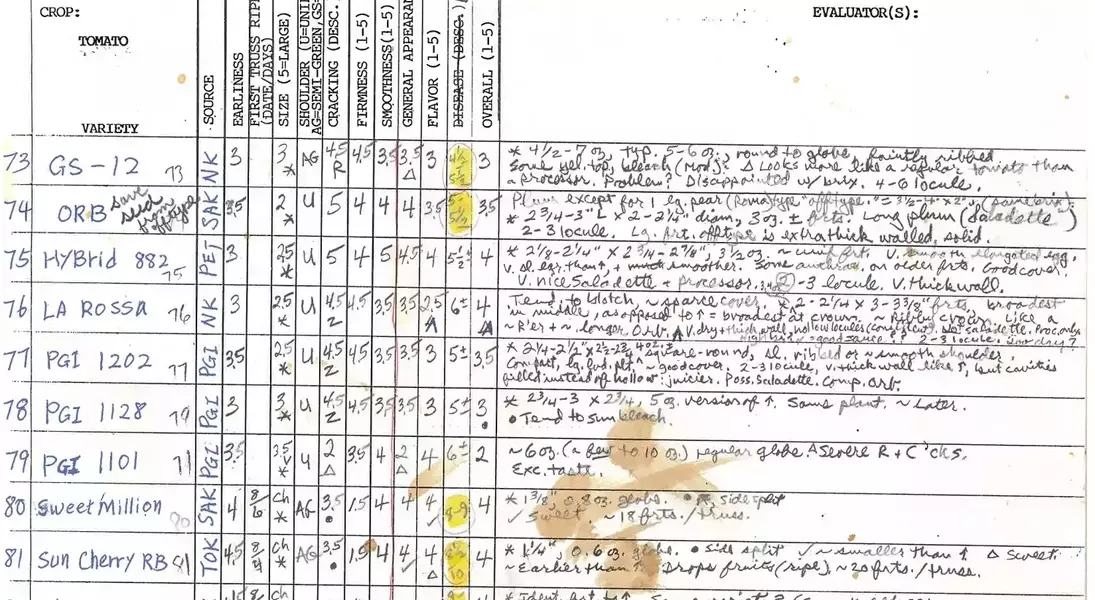 CROP:
TOMATO
VARIETY
SOURCE
EARLINESS
FIRST TRUSS RIPE
(DATE/DAYS)
SIZE (5=LARGE)
SHOULDER (U=UNIF
AG=SEMI-GREEN, GS=
CRACKING (DESC.)
FIRMNESS (1-5)
SMOOTHNESS (1-5)
GENERAL APPEARAN
FLAVOR (1-5)
DISEASE (DESC.)
OVERALL (1-5)
EVALUATOR(S):
73 GS-12 73 NK 3 3 * AG 4.5 R 4.5 3.5 3.5 Δ 3 4½ 5½ 3
* 4½-7 oz, typ. 5-6 oz, round to globe, faintly ribbed
Some yel. top, bleach (mod.). Δ Looks more like a regular tomato than
a processor. Problem? Disappointed w/ brix. 4-6 locule.
74 ORB save seed from offtype SAK 3.5 2 * U 5 4 4 4 3.5 5- 5½ 3.5
Plum except for 1 lg. pear (Roma) type "offtype" = 3½-4 × 2"
* 2¾-3" L × 2-2¼" diam, 3 oz. ± frts. Long plum (Saladette")
2-3 locule. Lg. frt. offtype is extra thick walled, solid.
75 HYBrid 882 75 PET 3 2.5 * U 5 4 5 4.5 4 5½± 4
* 2⅛-2¼" × 2¾-2⅞", 3½ oz. ~ unif. frts. V. smooth elongated egg.
V. sl. egg than ↑, + smoother. Some on older frts. Good cover.
V. nice Saladette + processor. 2-3 locule. V. thick wall.
76 LA ROSSA 76 NK 3 2.5 * U 4.5 Z 4.5 3.5 3.5 2.5 6± 4
Tend. to blotch, ~ sparse cover. * 2-2¼ × 3-3⅜" frts, broadest
in middle, as opposed to ↑ = broadest at crown. ~ Ribbed crown. Like a
~ R'er + ~ longer Orb. V. dry + thick wall, hollow locules Not saladette. Proc. only
2-3 locule. Too dry?
77 PGI 1202 77 PGI 3.5 2.5 * U 4.5 Z 4.5 3.5 3.5 3 5± 3.5
* 2¼-2½" × 2½-2¾ 4 oz. ± square-round, sl. ribbed or ~ smooth shoulder.
Compact, lg. lvd. plt, ~ good cover. 2-3 locule, v. thick wall like ↑, but cavities
filled instead of hollow: juicier. Poss. Saladette. Comp. Orb.
78 PGI 1128 79 PGI 3 3 * U 4.5 Z 4.5 3.5 3.5 3 5± 3
* 2¾-3 × 2¾, 5 oz. version of ↑. Same plant. ~ Later.
• Tend to sunbleach.
79 PGI 1101 PGI 3.5 3.5 * U 2 Δ 3.5 4 2 Δ 4 6± 2
~ 6 oz. (~ few to 10 oz.) regular globe. Δ Severe R + C 'cks.
Exc. taste.
80 Sweet Million 80 SAK 4 8/6 ch * AG 3.5 • 1.5 4 4 4 ✓ 8-9 4
* 1⅜", 0.8 oz. globe. • side split
✓ Sweet. ~ 18 frts./truss.
81 Sun Cherry RB 81 TOK 4.5 8/4 ch * AG 3.5 • 1.5 4 4 ✓ 4 Δ 10 4
* 1¼", 0.6 oz. globe. • Side split ✓ ~ smaller than ↑ Δ Sweet.
~ Earlier than ↑. Drops fruits (ripe), ~ 20 frts./truss.